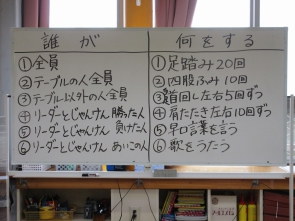 誰が
①全員
②テーブルの人全員
③テーブル以外の人全員
④リーダーとじゃんけん 勝った人
⑤リーダーとじゃんけん 負けた人
⑥リーダーとじゃんけん あいこの人
何をする
①足踏み20回
②四股ふみ10回
③首回し左右5回ずつ
④肩たたき左右10回ずつ
⑤早口言葉を言う
⑥歌をうたう